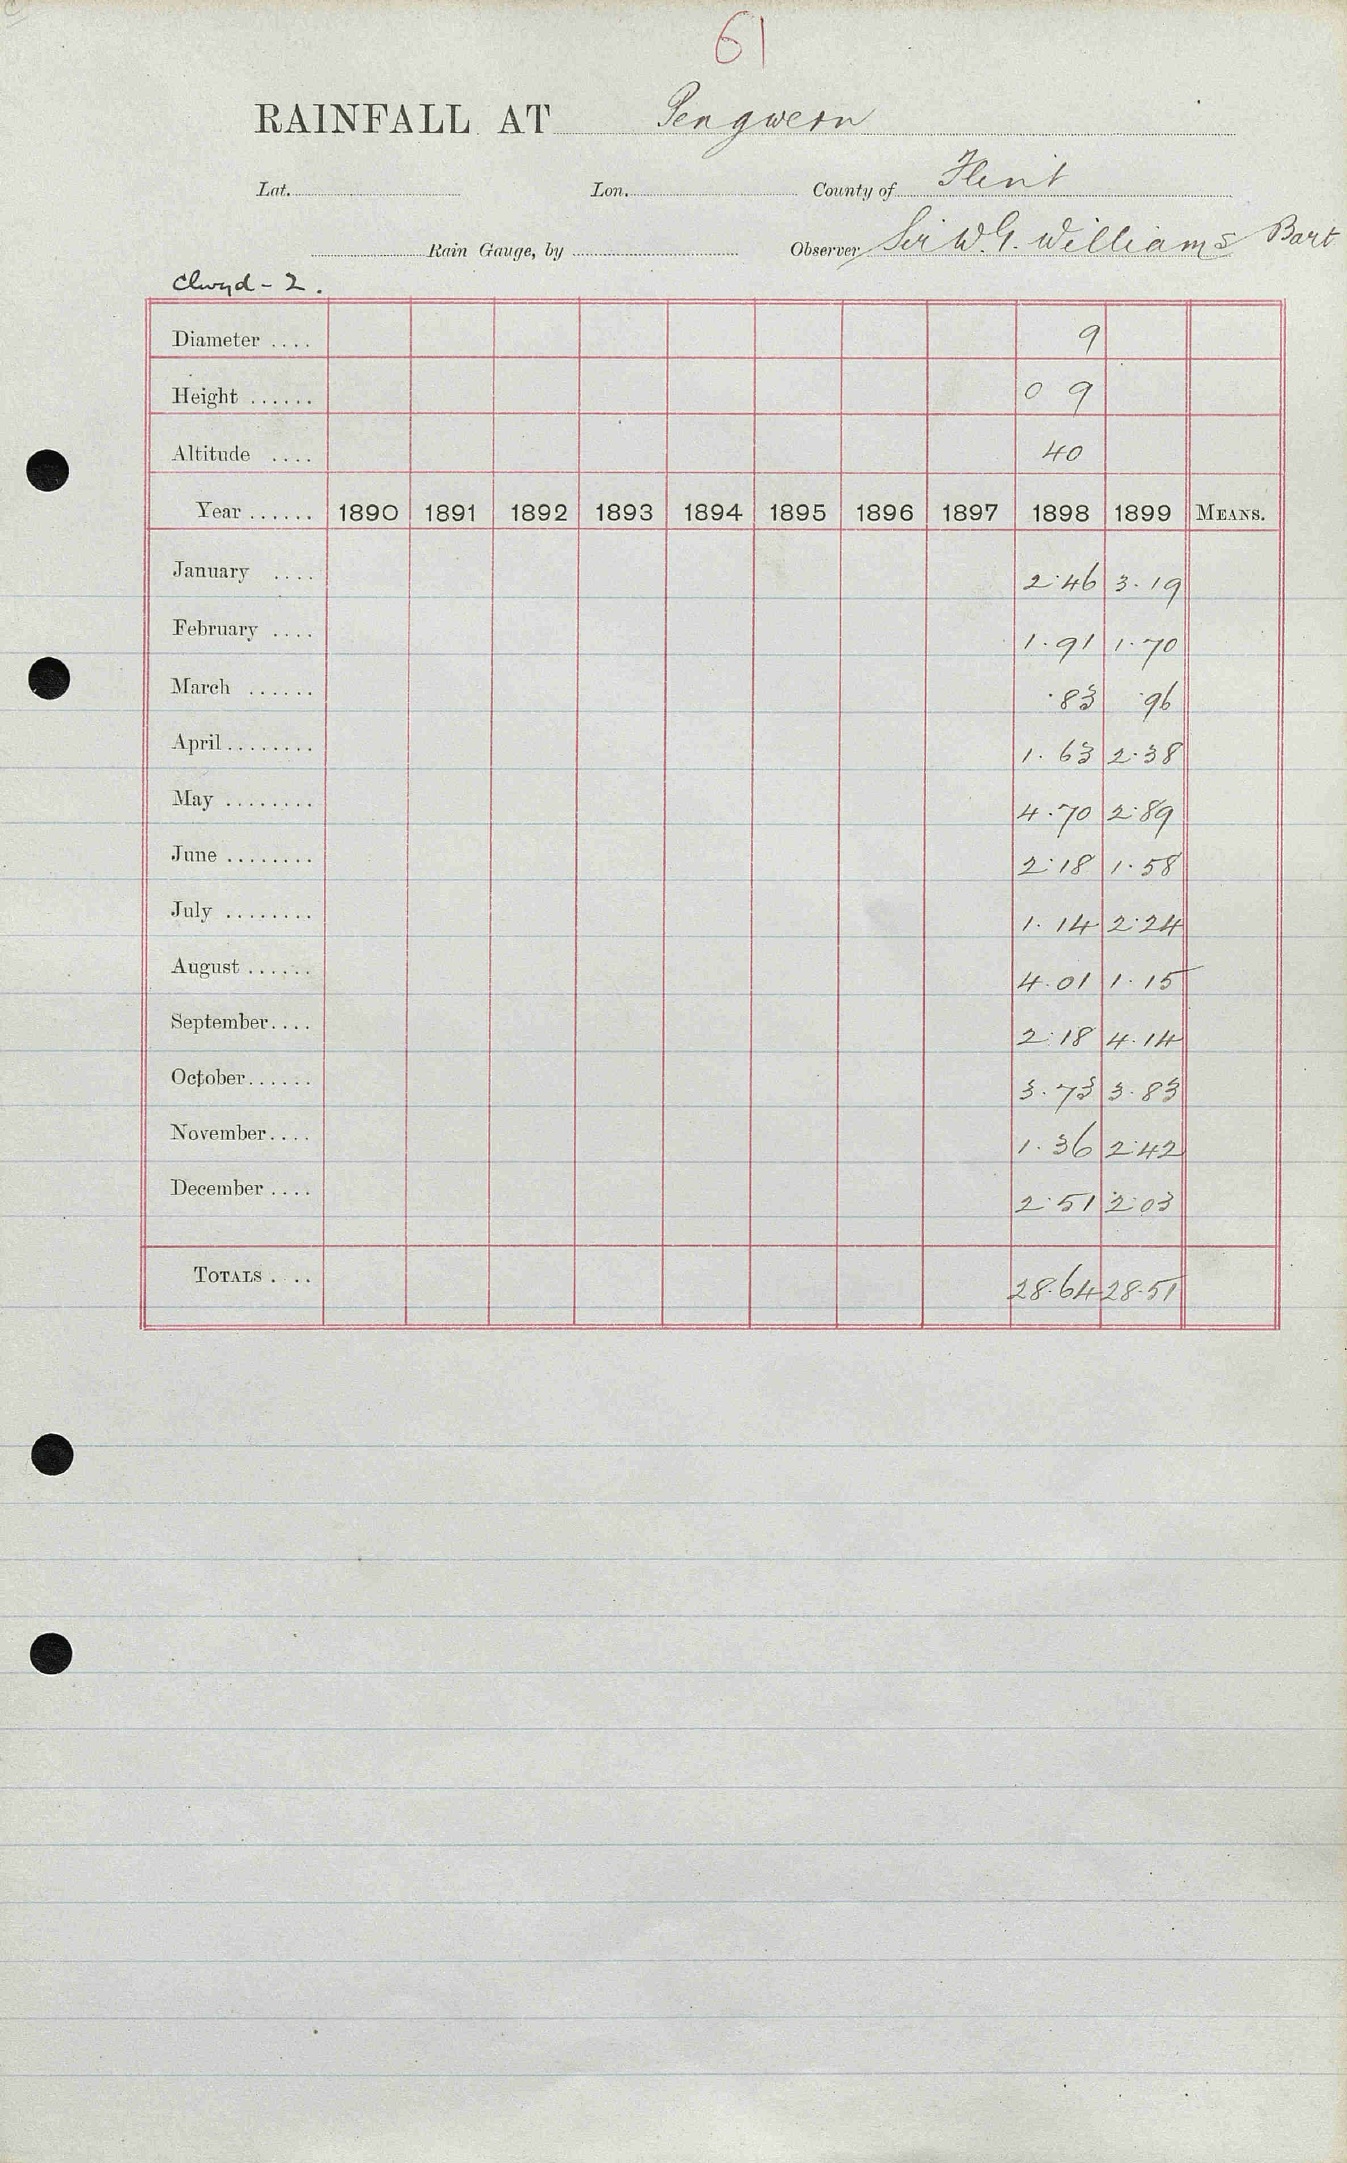 61
RAINFALL AT Pengwern
Lat. Lon. County of Flint
Rain Gauge, by Observer Sir W. G. Williams Bart
Clwyd - 2.
Diameter .... 9
Height ...... 0 9
Altitude .... 40
Year ...... 1890 1891 1892 1893 1894 1895 1896 1897 1898 1899 MEANS.
January .... 2.46 3.19
February .... 1.91 1.70
March ...... .83 .96
April ........ 1.63 2.38
May ........ 4.70 2.89
June ........ 2.18 1.58
July ........ 1.14 2.24
August ...... 4.01 1.15
September.... 2.18 4.14
October...... 3.73 3.83
November.... 1.36 2.42
December .... 2.51 2.03
TOTALS .... 28.64 28.51